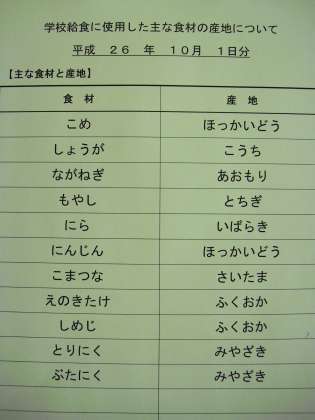 学校給食に使用した主な食材の産地について
平成 26 年 10月 1日分
【主な食材と産地】
食 材 産 地
こめ ほっかいどう
しょうが こうち
ながねぎ あおもり
もやし とちぎ
にら いばらき
にんじん ほっかいどう
こまつな さいたま
えのきたけ ふくおか
しめじ ふくおか
とりにく みやざき
ぶたにく みやざき